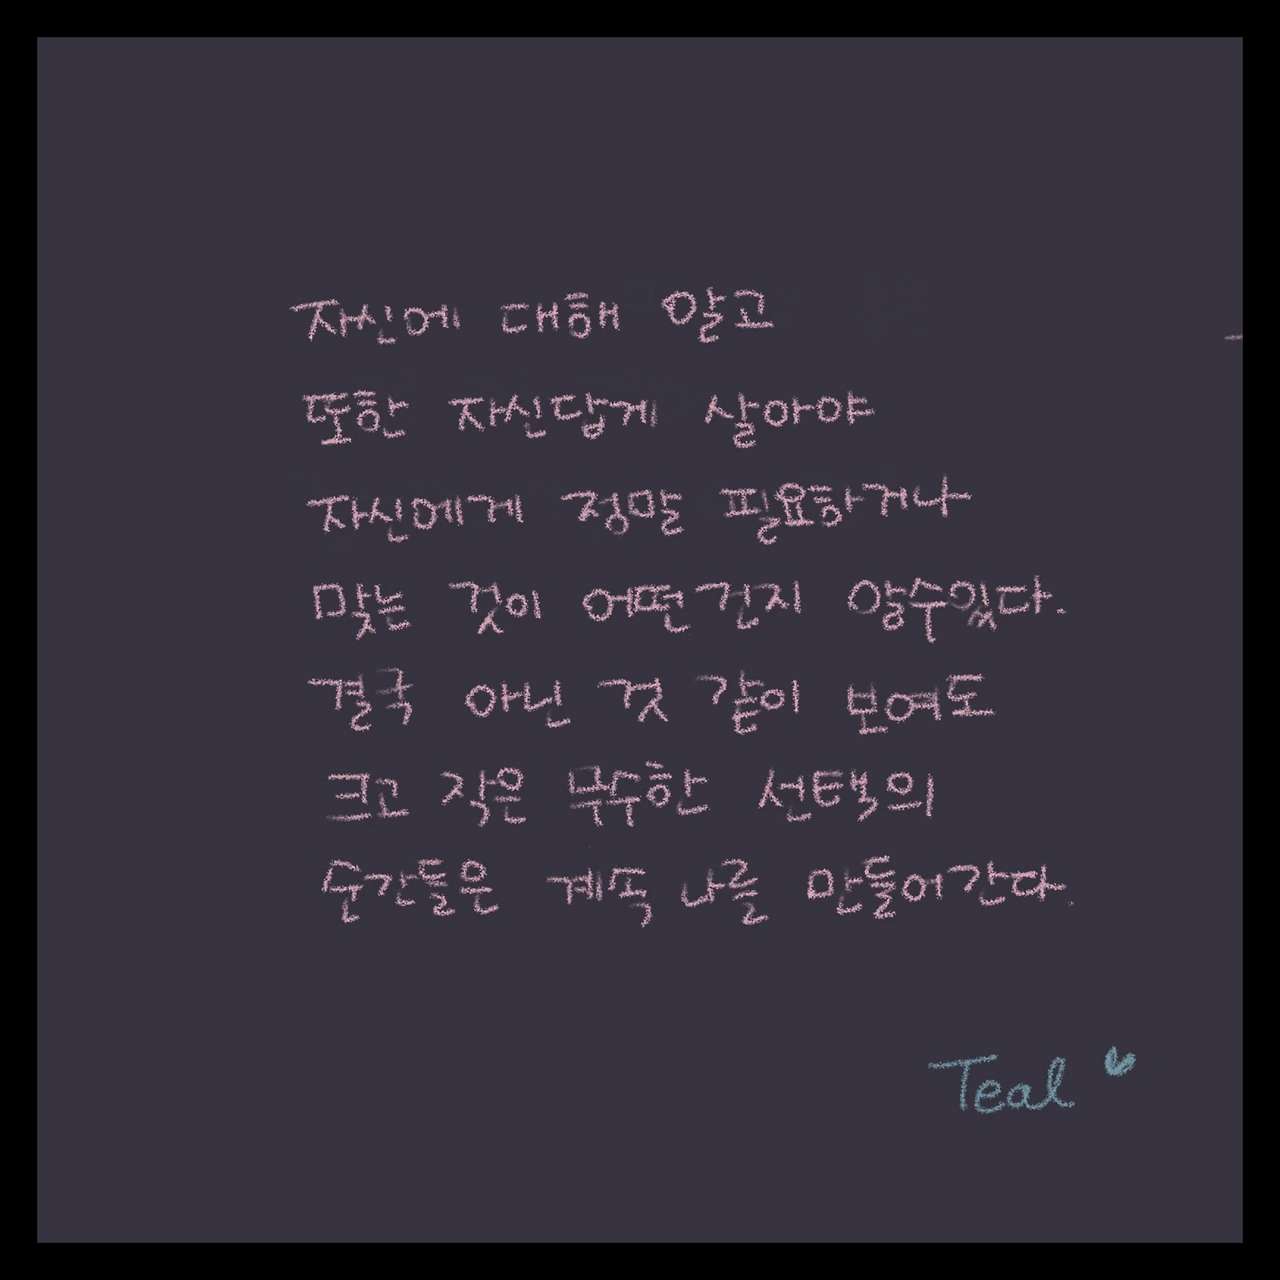 자신에 대해 알고
또한 자신답게 살아야
자신에게 정말 필요하거나
맞는 것이 어떤건지 알수있다.
결국 아닌 것 같이 보여도
크고 작은 무수한 선택의
순간들은 계속 나를 만들어간다.
Teal